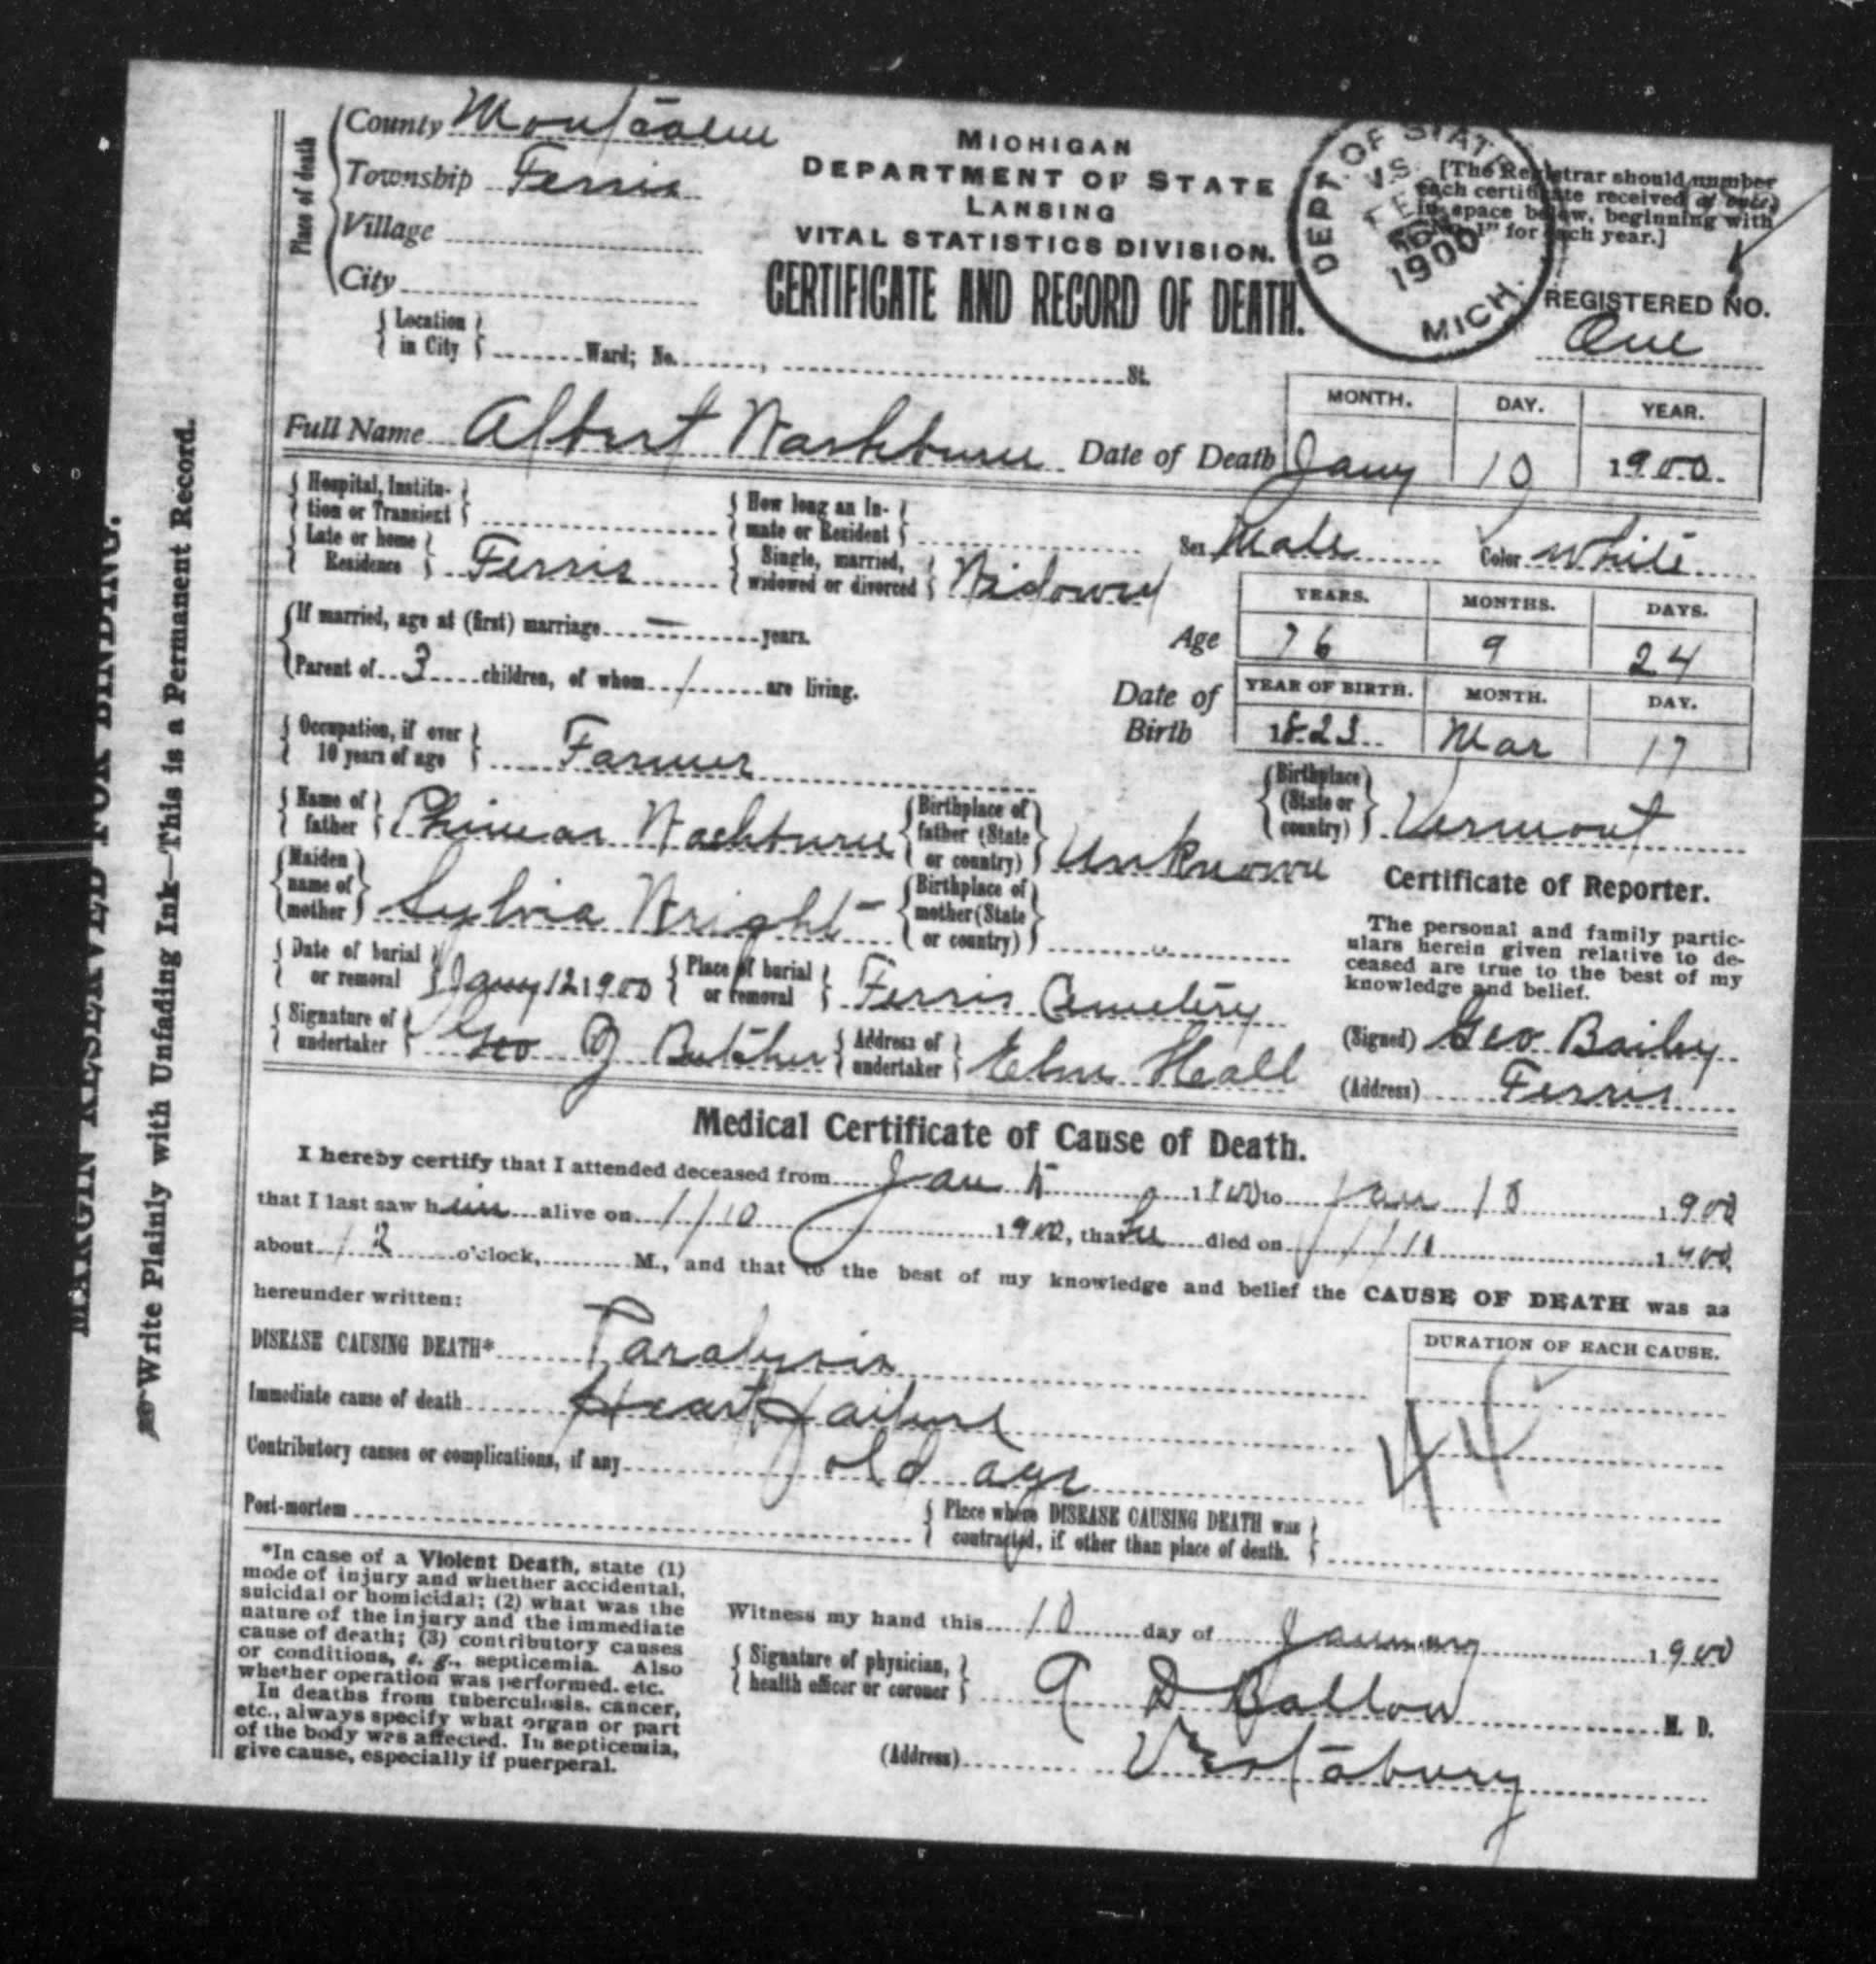 Place of death
County Montcalm
Township Ferris
Village
City
Location in City Ward; No. , St.
MICHIGAN
DEPARTMENT OF STATE
LANSING
VITAL STATISTICS DIVISION.
CERTIFICATE AND RECORD OF DEATH.
DEPT. OF STATE
V.S.
FEB
1900
MICH.
[The Registrar should number
each certificate received at once,
in space below, beginning with
"No. 1" for each year.]
REGISTERED NO.
One
Full Name Albert Washburn Date of Death
MONTH. DAY. YEAR.
Jany 10 1900
Hospital, Institution or Transient
How long an Inmate or Resident
Sex Male Color White
Late or home Residence Ferris
Single, married, widowed or divorced Widowed
If married, age at (first) marriage — years.
Parent of 3 children, of whom 1 are living.
Age
YEARS. MONTHS. DAYS.
76 9 24
Date of Birth
YEAR OF BIRTH. MONTH. DAY.
1823 Mar 17
Occupation, if over 10 years of age Farmer
Birthplace (State or country) Vermont
Name of father Washburn
Birthplace of father (State or country) Unknown
Maiden name of mother Sylvia Wright
Birthplace of mother (State or country) "
Date of burial or removal Jany 12 1900
Place of burial or removal Ferris Cemetery
Signature of undertaker Geo Butcher
Address of undertaker Elm Heall
Certificate of Reporter.
The personal and family partic-
ulars herein given relative to de-
ceased are true to the best of my
knowledge and belief.
(Signed) Geo Bailey
(Address) Ferris
Medical Certificate of Cause of Death.
I hereby certify that I attended deceased from Jan 5 1900 to Jan 10 1900
that I last saw him alive on 1/10 1900, that he died on 1/10 1900,
about 12 o'clock, M., and that to the best of my knowledge and belief the CAUSE OF DEATH was as
hereunder written:
DURATION OF EACH CAUSE.
DISEASE CAUSING DEATH* Paralysis
Immediate cause of death Heart failure
44
Contributory causes or complications, if any old age
Post-mortem
Place where DISEASE CAUSING DEATH was
contracted, if other than place of death.
*In case of a Violent Death, state (1)
mode of injury and whether accidental,
suicidal or homicidal; (2) what was the
nature of the injury and the immediate
cause of death; (3) contributory causes
or conditions, e. g., septicemia. Also
whether operation was performed. etc.
In deaths from tuberculosis, cancer,
etc., always specify what organ or part
of the body was affected. In septicemia,
give cause, especially if puerperal.
Witness my hand this 10 day of January 1900
Signature of physician, health officer or coroner A D Ballou M. D.
(Address) Vestaburg
MARGIN RESERVED FOR BINDING.
Write Plainly with Unfading Ink—This is a Permanent Record.